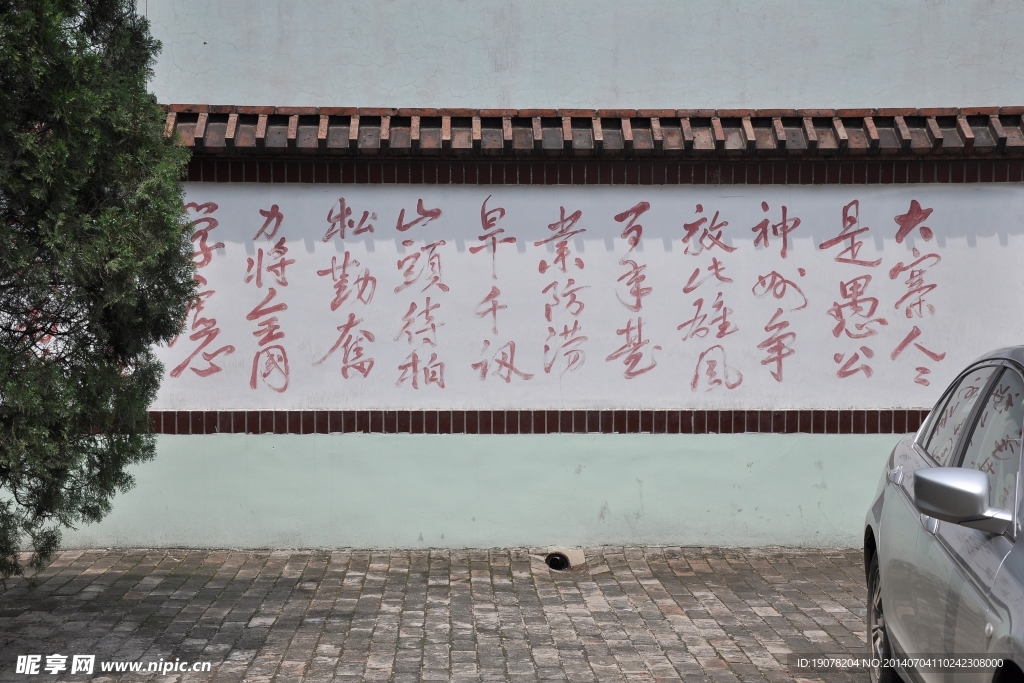 大寨人〻
是愚公
神州争
放此雄风
百年基
業防涝
旱千
山頭待柏
松勤奮
力将全國
学
昵享网 www.nipic.cn
ID:19078204 NO:20140704110242308000